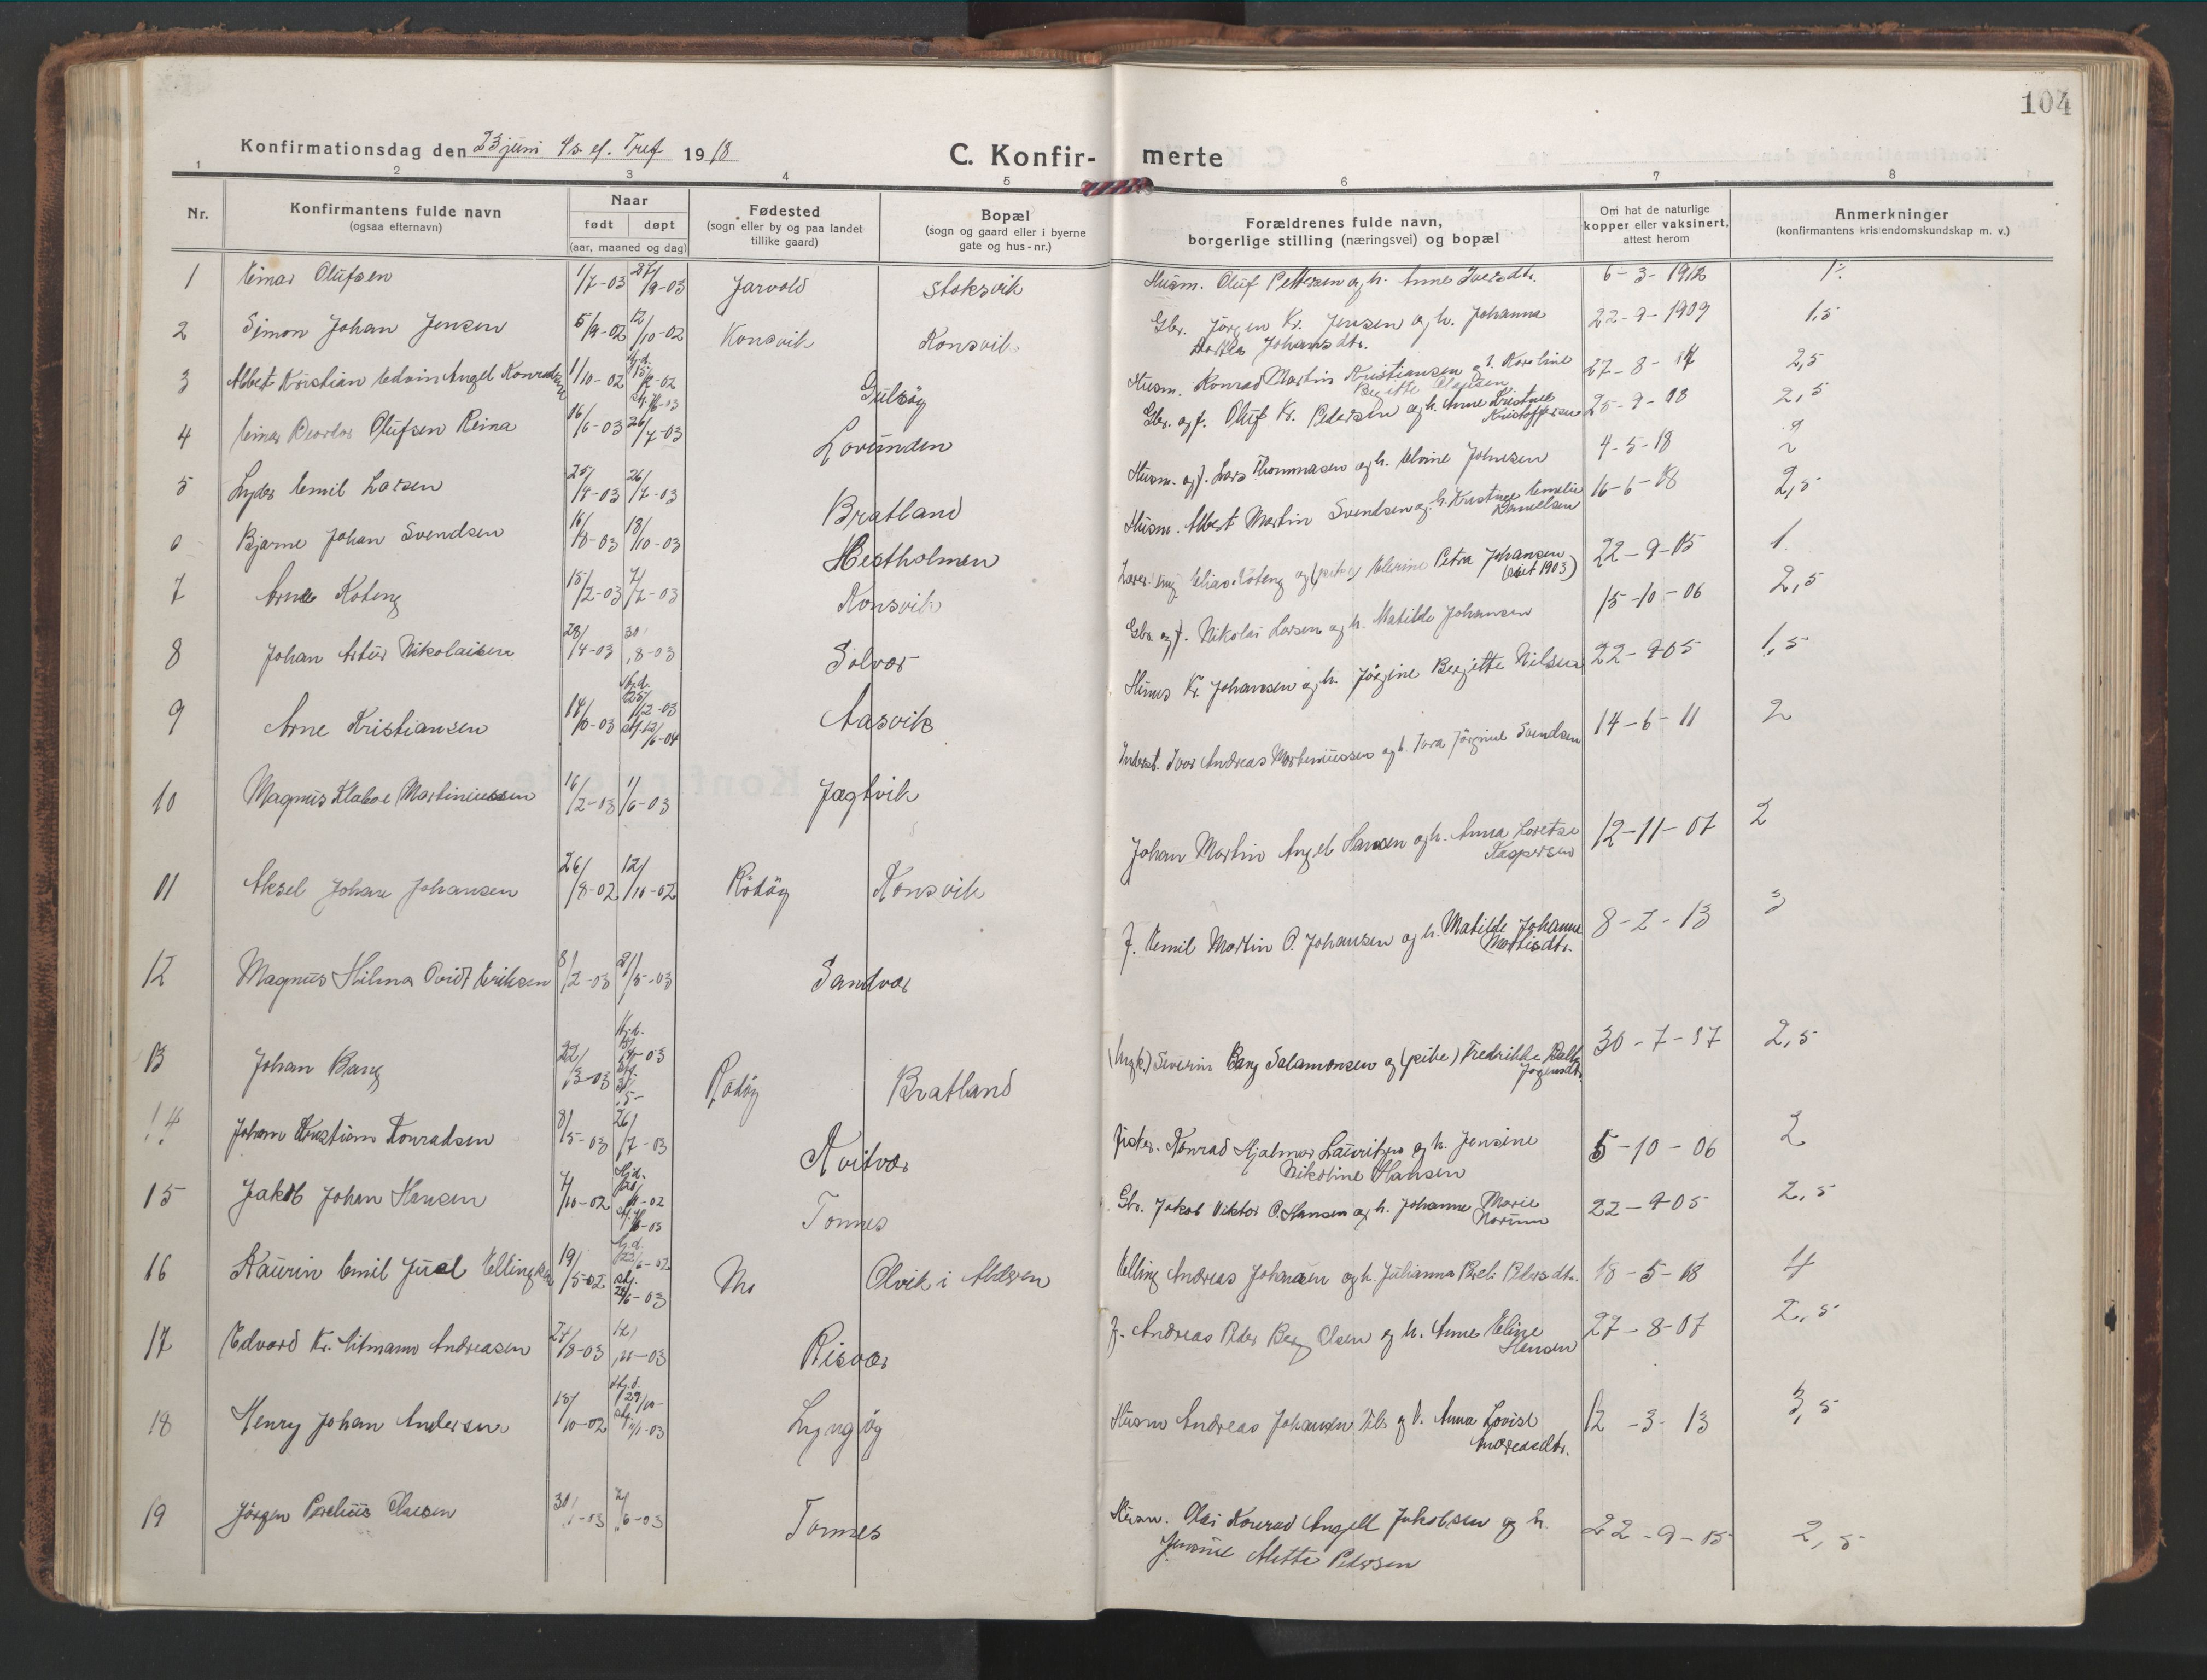 104
Konfirmationsdag den 23 juni 4 s. ef. Tref 1918
C. Konfir- merte
1 2 3 4 5 6 7 8
Nr.
Konfirmantens fulde navn
(ogsaa efternavn)
Naar
født døpt
(aar, maaned og dag)
Fødested
(sogn eller by og paa landet
tillike gaard)
Bopæl
(sogn og gaard eller i byerne
gate og hus-nr.)
Forældrenes fulde navn,
borgerlige stilling (næringsvei) og bopæl
Om hat de naturlige
kopper eller vaksinert,
attest herom
Anmerkninger
(konfirmantens kristendomskundskap m. v.)
1 Einar Olufsen 1/7-03 27/9-03 Jarvold Stoksvik Husm. Oluf Pettersen og h. Anne Iversdtr. 6-3-1912 1
2 Simon Johan Jensen 5/9-02 12/10-02 Konsvik Konsvik Gbr. Jörgen Kr. Jensen og h. Johanna
Johansdtr. 22-9-1909 1,5
3 Albert Kristian Edvin Angel Konradsen 1/10-02 Hj.d. 15/12-02 Gulsöy Husm. Konrad Martin Kristiansen og h. Karoline
Bergitte Olausen 27-8-17 2,5
4 Einar Olufsen Reina 16/6-03 26/7-03 Lovunden Gbr. og f. Oluf Kr. Pedersen og h. Anne Kristine
Kristoffersen 25-9-08 2,5
5 Lyder Emil Larsen 25/4-03 26/7-03 Bratland Husm. og f. Lars Thommasen og h. Elvine Johnsen 4-5-18 2
6 Bjarne Johan Svendsen 16/8-03 18/10-03 Hestholmen Husm. Albert Martin Svendsen og h. Kristine Emelie
Danielsen 16-6-08 2,5
7 Arne Koteng 15/2-03 7/7-03 Konsvik Elias Koteng og (pike) Elerine Petra Johansen 22-9-05 1
8 Johan Artur Nikolaisen 28/4-03 30/8-03 Solvær Gbr. og f. Nikolai Larsen og h. Matilde Johansen 15-10-06 2,5
9 Arne Kristiansen 14/10-03 Hj.d. 25/12-03 st.f. 12/6-04 Aasvik Kr. Johansen og h. Jörgine Bergitte Nilsen 22-9-05 1,5
10 Magnus Klaboe Martiniussen 16/2-03 1/6-03 Jægtvik Inderst. Ivar Andreas Martiniussen og h. Jörgine Svendsen 14-6-11 2
11 Aksel Johan Johansen 26/8-02 12/10-02 Rödöy Konsvik Johan Martin Angel Hansen og h. Anna Loretse
Kaspersen 12-11-07 2
12 Magnus Hilmar Ovidt Eriksen 8/2-03 31/5-03 Sandvær F. Emil Martin O. Johansen og h. Matilde Johanne
Martisdtr. 8-2-13 3
13 Johan Bang 22/3-03 Rödöy Bratland (Ungk.) Severin Bang Salamonsen og (pike) Fredrikke
30-7-17 2,5
14 Johan Kristian Konradsen 8/5-03 26/7-03 Kvitvær Fisker. Konrad Hjalmar Lauritzen og h. Jensine
Nikoline Hansen 5-10-06 2
15 Jakob Johan Hansen 7/10-02 Tonnes Gbr. Jakob Viktor O. Hansen og h. Johanne Marie
Norum 22-9-05 2,5
16 Kaurin Emil Juel Ellingsen 19/5-02 Mo Olvik i Aldersn Elling Andreas Johansen og h. Julianna Pedersdtr. 18-5-18 4
17 Edvard Kr. Andreasen 24/8-03 Risvær F. Andreas Peder Berg Olsen og h. Anne Eline
Hansen 27-8-07 2,5
18 Henry Johan Andersen 18/10-02 Lyngöy Husm Andreas Johansen og h. Anna Lovise
Andreasdtr. 12-3-13 3,5
19 Jörgen Olaisen 30/1-03 2/6-03 Tonnes Husm. Olai Konrad Angell Jakobsen og h.
Jensine Alette Pedersen 22-9-15 2,5